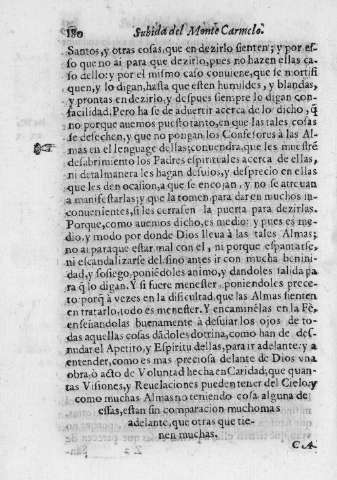 180 Subida del Monte Carmelo.
Santos, y otras cosas, que en dezirlo sienten; y por es-
so que no ai para que dezirlo, pues no hazen ellas ca-
so dello: y por el mismo caso conuiene, que se mortifi
quen, y lo digan, hasta que esten humildes, y blandas,
y prontas en dezirlo, y despues siempre lo digan con
facilidad. Pero ha se de aduertir acerca de lo dicho, q̃
no porque auemos puesto tanto, en que las tales cosas
se desechen, y que no pongan los Confesores à las Al
mas en el lenguage dellas; conuendra, que les muestrẽ
desabrimiento los Padres espirituales acerca de ellas,
ni de tal manera les hagan desuios, y desprecio en ellas
que les den ocasion, a que se encojan, y no se atreuan
a manifestarlas; y que la tomen para dar en muchos in
conuenientes, si les cerrasen la puerta para dezirlas.
Porque, como auemos dicho, es medio: y pues es me-
dio, y modo por donde Dios lleua à las tales Almas;
no ai para que estar mal con el, ni porque espantarse,
ni escandalizarse del, sino antes ir con mucha benini-
dad, y sosiego, poniẽdoles animo, y dandoles salida pa
ra q̃ lo digan. Y si fuere menester, poniendoles prece-
to porq̃ à vezes en la dificultad, que las Almas sienten
en tratarlo, todo es menester. Y encaminẽlas en la Fè,
enseñandolas buenamente à desuiar los ojos de to-
das aquellas cosas dãdoles dotrina, como han de des-
nudar el Apetito, y Espiritu dellas, para ir adelante: y a
entender, como es mas preciosa delante de Dios vna
obra, ò acto de Voluntad hecha en Caridad, que quan-
tas Visiones, y Reuelaciones pueden tener del Cielo, y
como muchas Almas no teniendo cosa alguna de
essas, estan sin comparacion mucho mas
adelante, que otras que tie-
nen muchas.
CA-